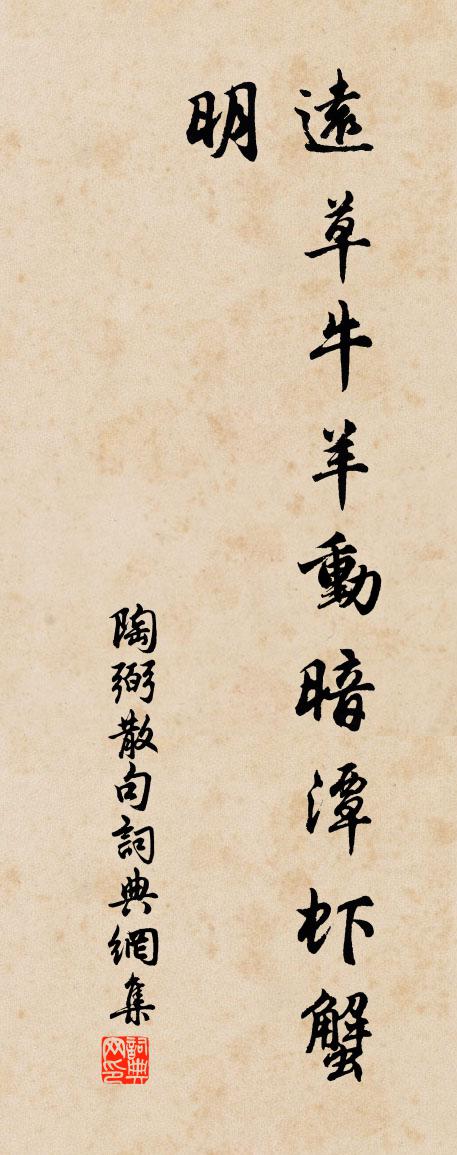 遠草牛羊動暗潭虾蟹
明
陶弼散句詞典網集
詞典网印